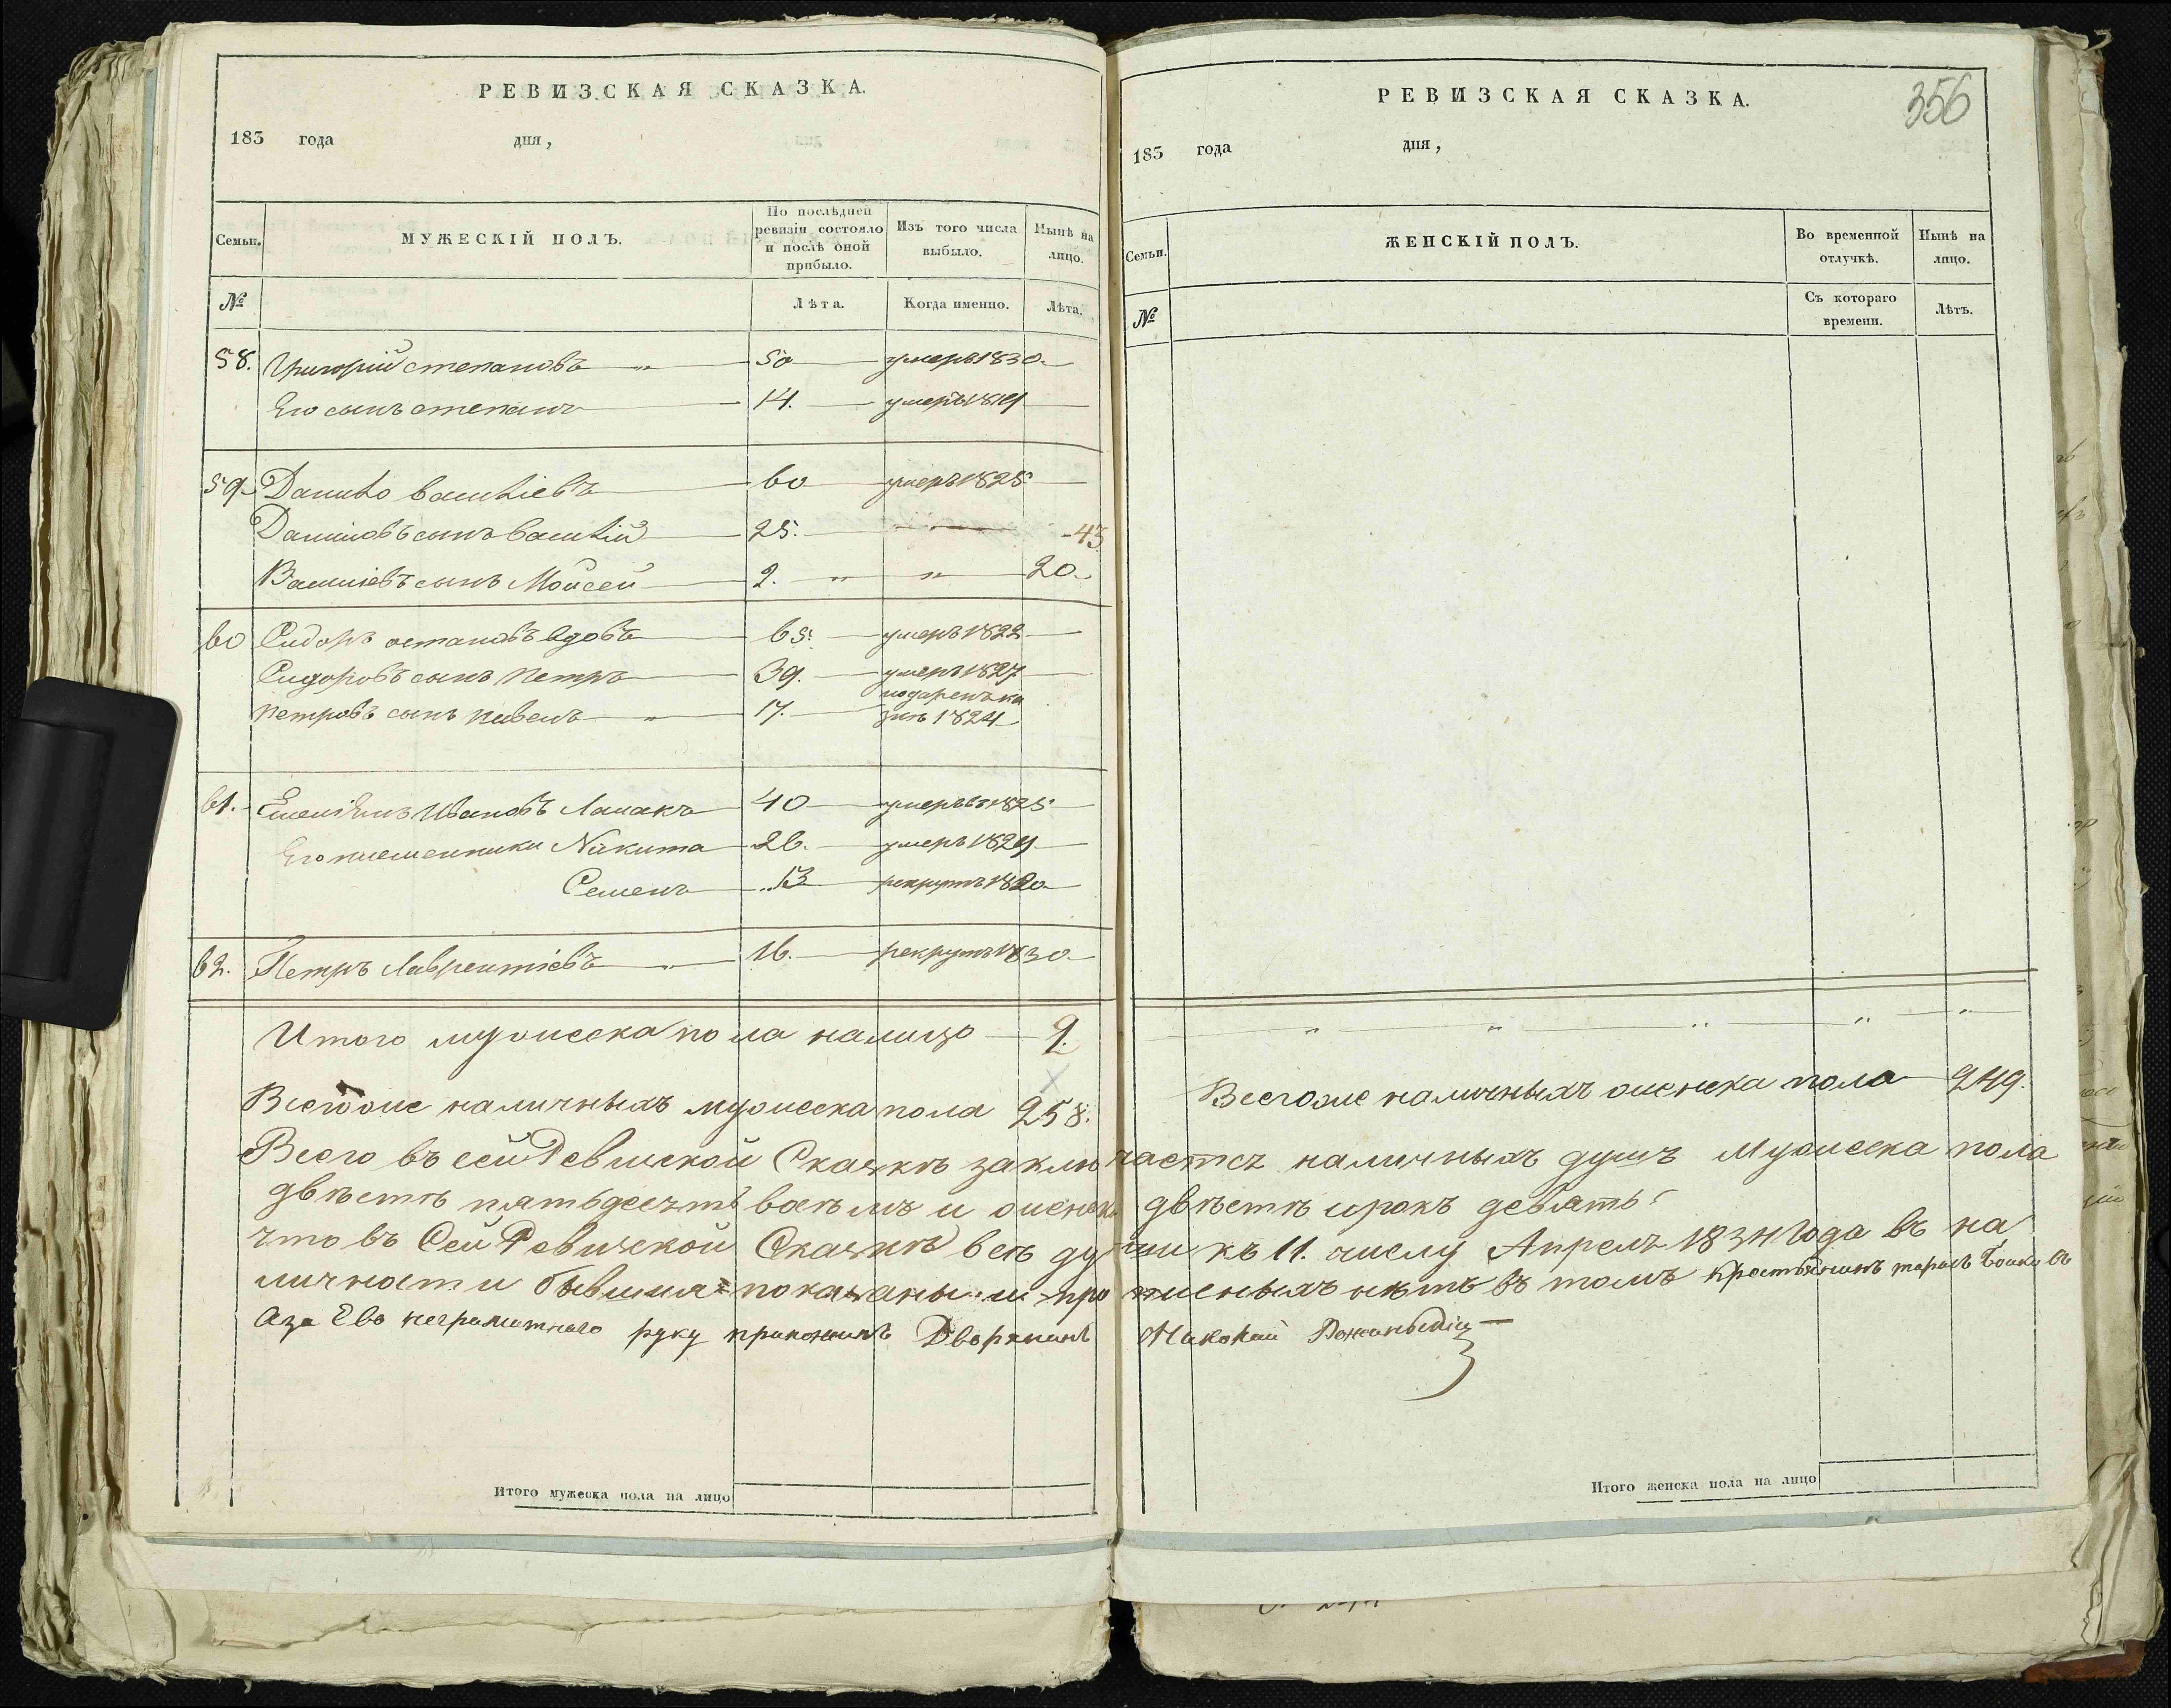 РЕВИЗСКАЯ СКАЗКА.
183 года дня,
Семьи. МУЖЕСКІЙ ПОЛЪ. По послѣдней ревизіи состояло и послѣ оной прибыло. Изъ того числа выбыло. Нынѣ на лицо.
№ Лѣта. Когда именно. Лѣта.
58. Григорій степановъ „ 50 умеръ 1830.
Его сынъ степанъ 14. умеръ 1819
59. Данило василіевъ 60 умеръ 1825
Даниловъ сынъ василій 25. 43
Василіевъ сынъ Мойсей 2. „ „ 20.
60 Сидоръ остаповъ вдовъ 65. умеръ 1822
Сидоровъ сынъ петръ 39. умеръ 1827
Петровъ сынъ павелъ „ 17. 1824
61. Емеліянъ Ивановъ 40 умеръ въ 1825
Его племенники Никита 26. умеръ 1829
Семенъ 13 рекрутъ 1820
62. Петръ Лаврентіевъ „ 16. рекрутъ 1830
Итого мужеска пола налицо 9.
Всегоже наличныхъ мужеска пола 258.
Итого мужеска пола на лицо
РЕВИЗСКАЯ СКАЗКА.
356
183 года дня,
Семьи. ЖЕНСКІЙ ПОЛЪ. Во временной отлучкѣ. Нынѣ на лицо.
№ Съ котораго времени. Лѣтъ.
„ „ „ „ „
Всегоже наличныхъ женска пола 249.
Всего въ сей Ревизской Сказкѣ заключается наличныхъ душъ Мужеска пола
двѣстѣ пятьдесятъ восѣмъ и женска двѣстѣ сорокъ девять
что въ Сей Ревизской Сказкѣ всѣ души къ 11. числу Апреля 1834 года въ на
личности бывшия показаны и нѣтъ въ томъ крестьянинъ тарасъ
Аза Ево неграматнаго руку приложилъ Дворянинъ Николай
Итого женска пола на лицо